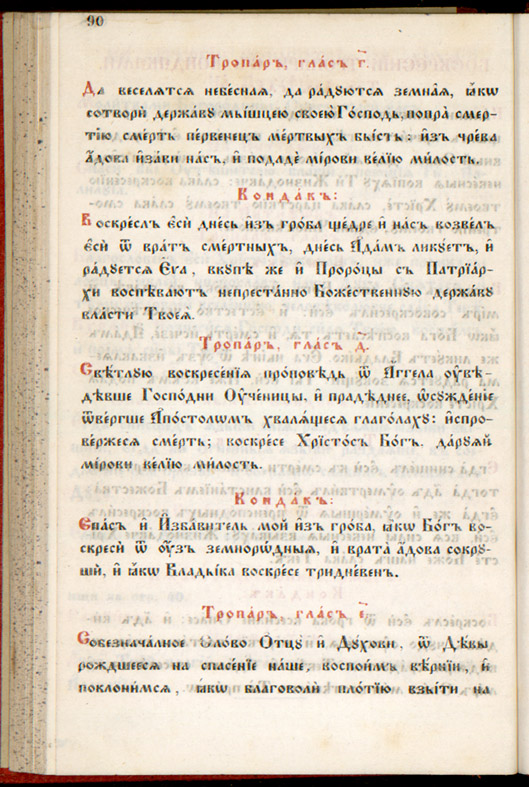 90
Тропа́рь, гла́съ г҃.
Да веселѧ́тсѧ небе́снаѧ, да ра́дꙋютсѧ земна́ѧ, ꙗ҆́кѡ
сотворѝ держа́вꙋ мы́шцею свое́ю Го́сподь, попра̀ сме́р-
тїю сме́рть пе́рвенец ме́ртвыхъ бы́сть: и҆з̾ чре́ва
а҆́дова и҆зба́ви на́съ, и҆ подадѐ мі́рови ве́лїю ми́лость.
Конда́къ:
Воскре́слъ є҆сѝ дне́сь и҆з̾ гро́ба ще́дре и҆ на́съ возве́лъ
є҆сѝ ѿ вра́тъ сме́ртныхъ, дне́сь А҆да́мъ ликꙋ́етъ, и҆
ра́дꙋетсѧ Є҆́ѵа, вкꙋ́пѣ же и҆ Проро́цы съ Патрїа́р-
хи воспѣва́ютъ непреста́нно Боже́ственнꙋю держа́вꙋ
вла́сти Твоеѧ̀.
Тропа́рь, гла́съ д҃.
Свѣ́тлꙋю воскресе́нїѧ про́повѣдь ѿ А҆́ггела ᲂу҆вѣ́-
дѣвше Госпо́дни Оу҆чени́цы, и҆ пра́дѣднее, ѡ҆сꙋжде́нїе
ѿве́ргше А҆по́столѡмъ хва́лѧщесѧ глаго́лахꙋ: и҆спро-
ве́ржесѧ сме́рть; воскре́се Хрїсто́съ Бо́гъ, да́рꙋѧй
ми́рови ве́лїю ми́лость.
Конда́къ:
Спа́съ и҆ И҆зба́витель мо́й и҆з̾ гро́ба, ꙗ҆́кѡ Бо́гъ во-
скресѝ ѿ ᲂу҆́зъ земнорѡ́дныѧ, и҆ врата̀ а҆́дова сокрꙋ-
шѝ, и҆ ꙗ҆́кѡ Влады́ка воскре́се тридне́венъ.
Тропа́рь, гла́съ є҃.
Собезнача́лное Сло́во Отцꙋ̀ и҆ Дꙋ́хови, ѿ Дѣ́вы
ро́ждшеесѧ на спасе́нїе на́ше, воспои́мъ вѣ́рнїи, и҆
поклони́мсѧ, ꙗ҆́кѡ благоволѝ пло́тїю взы́ти на